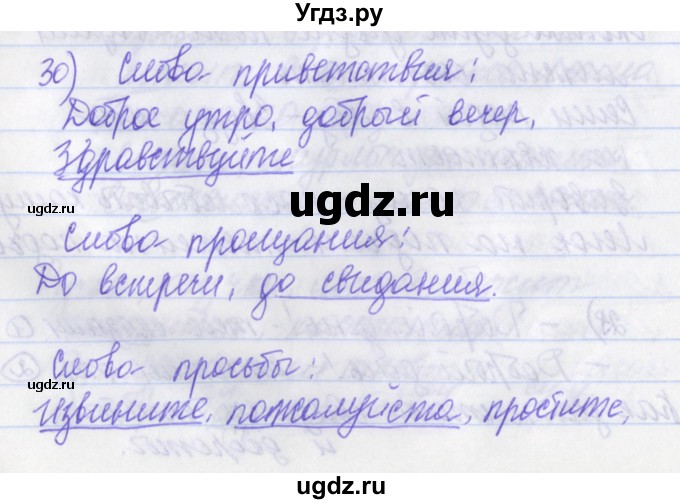 Угдз.ру
30) Слова приветствия:
Доброе утро, добрый вечер,
Здравствуйте
ugdz.ru
ugdz.ru
ugdz.ru
Слова прощания:
До встречи, до свидания.
Слова просьбы:
ugdz.ru
ugdz.ru
Извините, пожалуйста, простите,